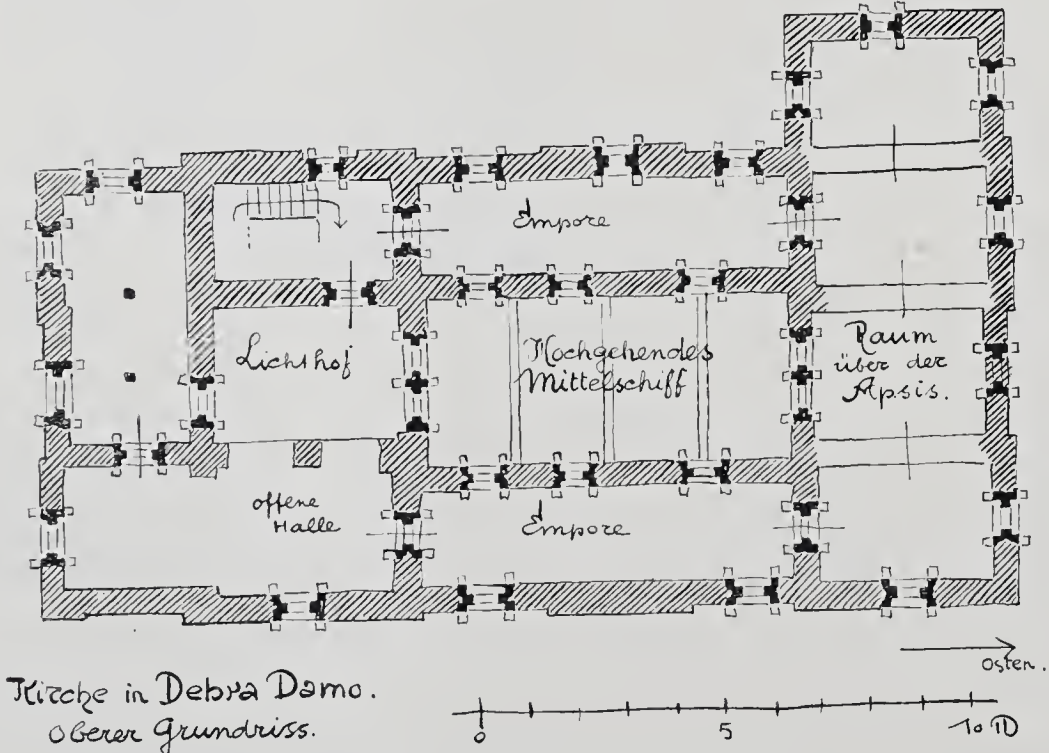 Empore
Lichthof
Hochgehendes
Mittelschiff
Raum
über der
Apsis.
offene
Halle
Empore
Osten.
Kirche in Debra Damo.
oberer Grundriss.
0 5 10 m